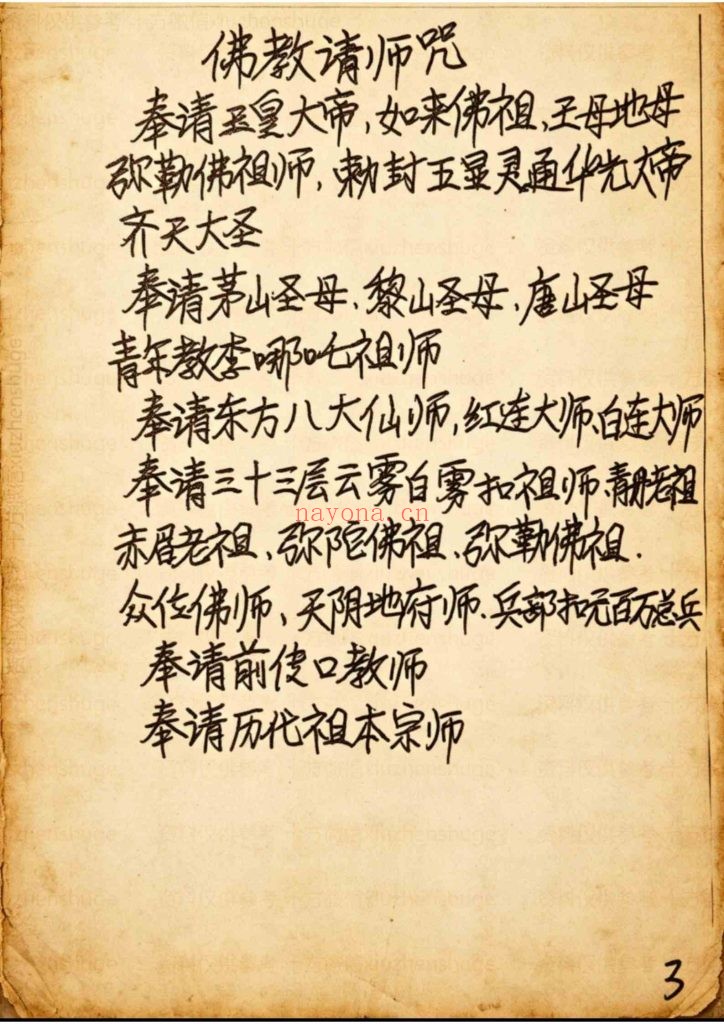 佛教请师咒
奉请玉皇大帝、如来佛祖、王母地母
弥勒佛祖师,勅封五显灵通华光大帝
齐天大圣
奉请茅山圣母、黎山圣母、唐山圣母
青年教李哪吒祖师
奉请东方八大仙师,红连大师、白连大师
奉请三十三层云雾白雾扣祖师、青丹老祖
nayona.cn
赤眉老祖、弥陀佛祖、弥勒佛祖.
众位佛师、天阴地府师.兵部扣元百万总兵
奉请前传口教师
奉请历代祖本宗师
3